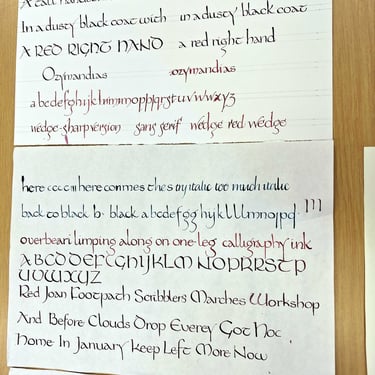 In a dusty black coat with in a dusty black coat
A RED RIGHT HAND a red right hand
Ozymandias ozymandias
abcdefghijklmnmophqrstuvwwxyz
wedge-sharp version sans serif wedge red wedge
here here conmes the
back to black b. black abcdefgghykl
overbear lumping along on one-leg calligraphy ink
ABCDDEFCGHIJKLM NOPRRSTP
UVWWXYZ
Red Joan Footpath Scribblers Marches Workshop
And Before Clouds Drop Everey Got Noc
Home In January Keep Left More Now